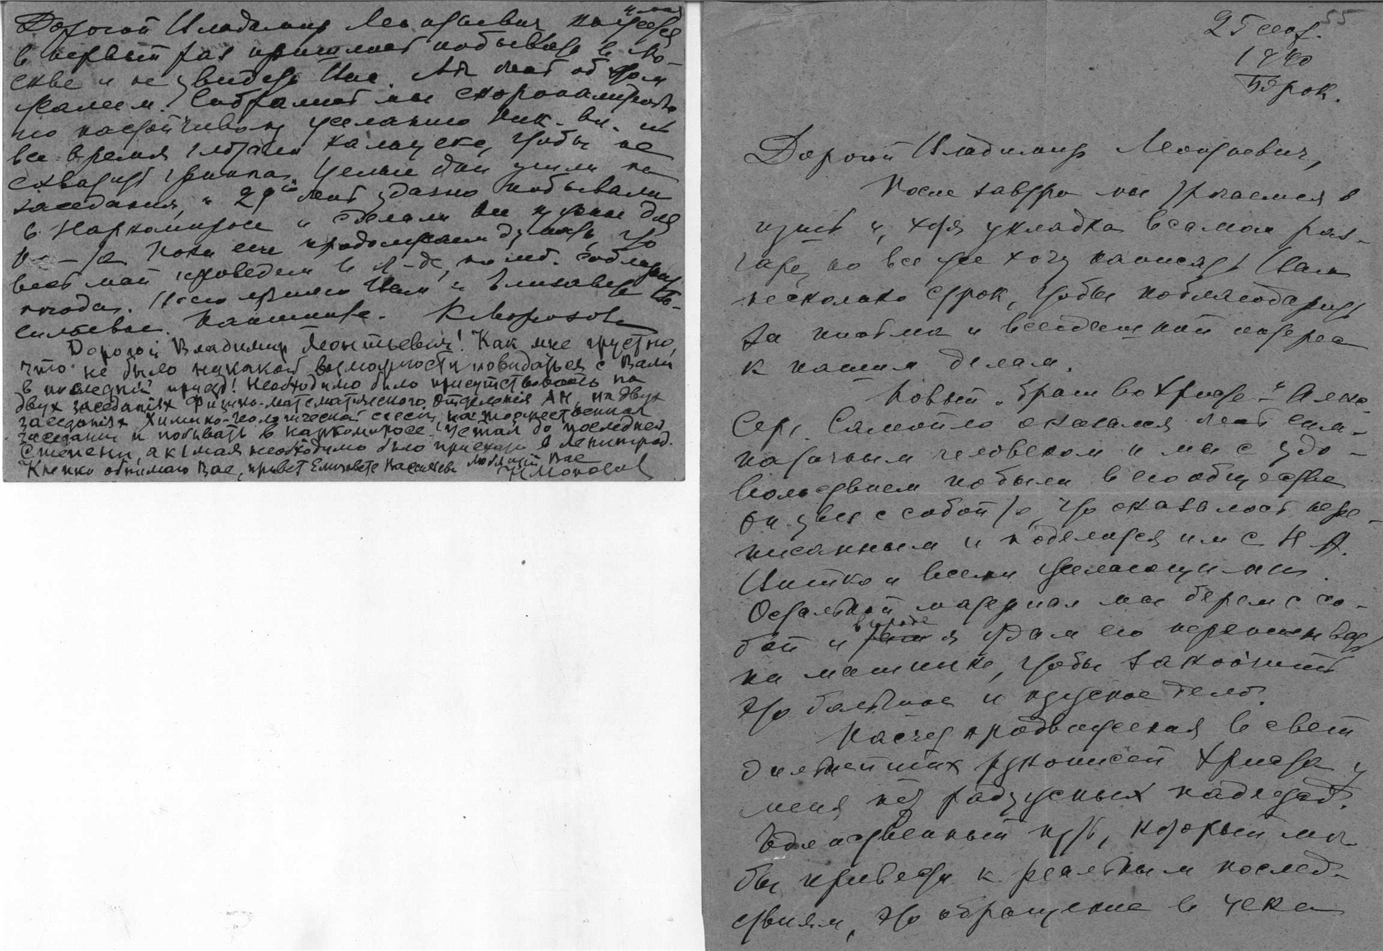 Дорогой Владимир Леонтьевич
в первый раз пришлось побывать в Мо-
скве и не увидеть Вас. Мы об этом
жалеем. Собрались мы скоропалительно
по настойчивому желанию Ник. Ал. и
все время глотали кальцекс, чтобы не
схватить гриппа. Целые дни ушли на
заседания, и 29го побывали
в Наркомпросе и сделали все нужное для
Пока еще продолжаем думать, что
весь май проведем в Л-де,
погода. Шлем привет Вам и Елизавете Ва-
сильевне. Пишите. К Морозова
Дорогой Владимир Леонтьевич! Как мне грустно,
что не было никакой возможности повидаться с Вами
в последний приезд! Необходимо было присутствовать на
двух заседаниях Физико-математического Отделения АН, на двух
заседаниях Химико-геологической сессии, на торжественном
заседании и побывать в Наркомпросе. Устал до последней
степени, а 1 мая необходимо было приехать в Ленинград.
Крепко обнимаю Вас, привет Елизавете Васильевне любящий Вас
Н. Морозов
55
1940
Борок.
Дорогой Владимир Леонтьевич,
После завтра мы уезжаем в
путь и, хотя укладка в самом раз-
гаре, но все же хочу написать Вам
несколько строк, чтобы поблагодарить
за письма и всегдашний интерес
к нашим делам.
Новый „брат во Христе" Алек.
Серг. Самойло оказался симпа-
тичным человеком и мы с удо-
вольствием побыли в его обществе
он увез с собой то, что оказалось пере-
писанным и поделится им с Н. А.
и всеми желающими.
Остальной материал мы берем с со-
бой и в городе я отдам его переписывать
на машинке, чтобы закончить
это большое и нужное дело.
Насчет продвижения в свет
дальнейших рукописей Христа у
меня нет радужных надежд.
Единственный путь, который мог
бы привести к реальным послед-
ствиям, это обращение в Цека